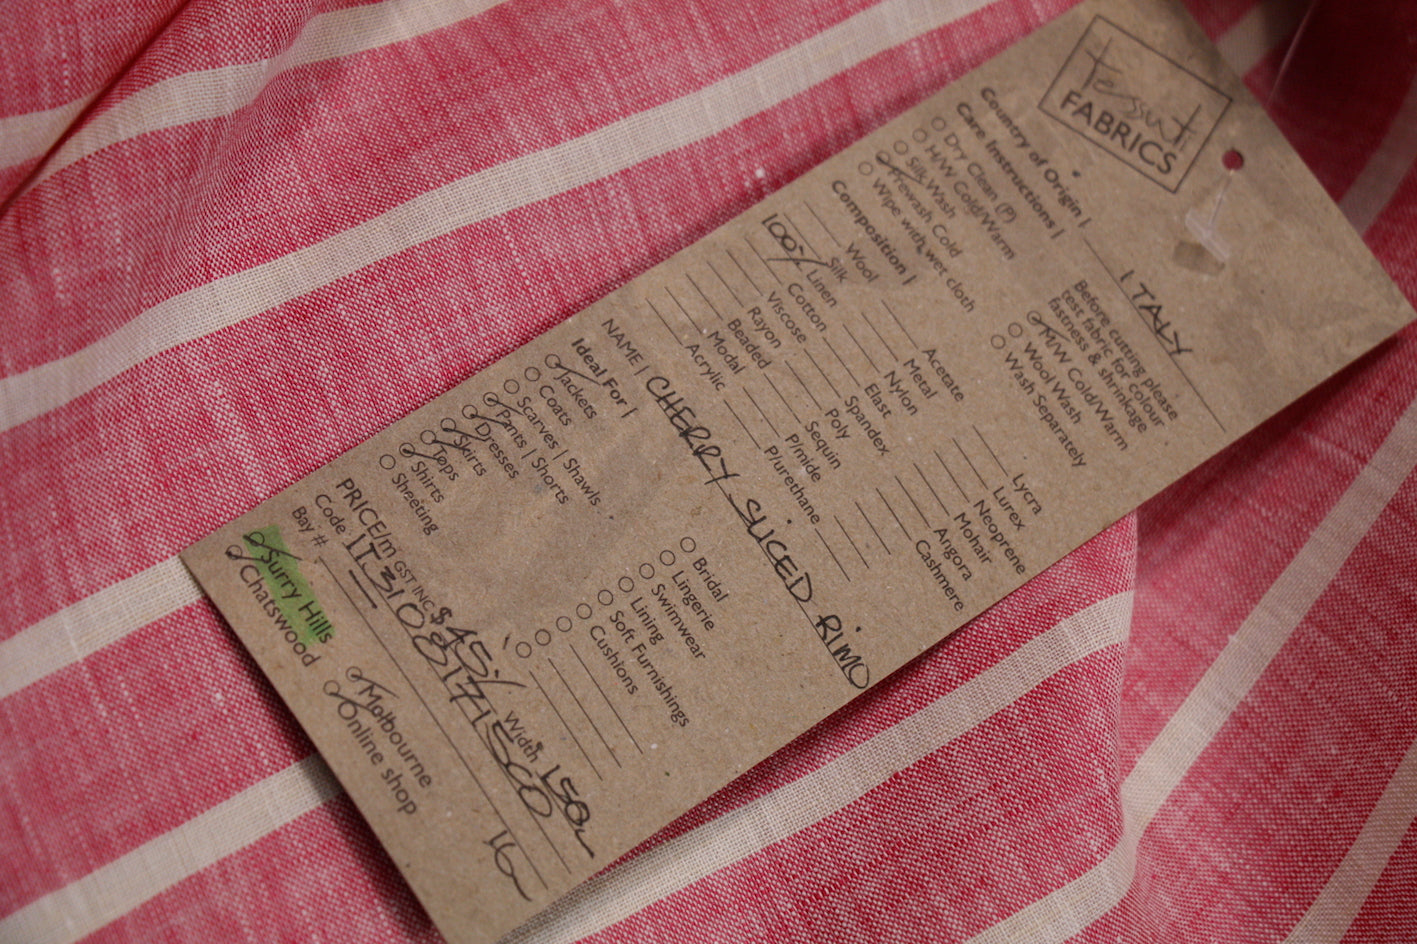 Tessuti
FABRICS
Country of Origin | ITALY
Care Instructions |
Dry Clean (P)
H/W Cold/Warm
Silk Wash
Prewash Cold
Wipe with wet cloth
Before cutting please
test fabric for colour
fastness & shrinkage
M/W Cold/Warm
Wool Wash
Wash Separately
Composition |
Wool
Silk
100% Linen
Cotton
Viscose
Rayon
Beaded
Modal
Acrylic
Acetate
Metal
Nylon
Elast
Spandex
Poly
Sequin
P/mide
P/urethane
Lycra
Lurex
Neoprene
Mohair
Angora
Cashmere
NAME | CHERRY SLICED RIMO
Ideal For |
Jackets
Coats
Scarves | Shawls
Pants | Shorts
Dresses
Skirts
Tops
Shirts
Sheeting
Bridal
Lingerie
Swimwear
Lining
Soft Furnishings
Cushions
PRICE/m GST INC $45. Width 150
Code IT3108171500
Bay # 16
Surry Hills
Chatswood
Melbourne
Online shop